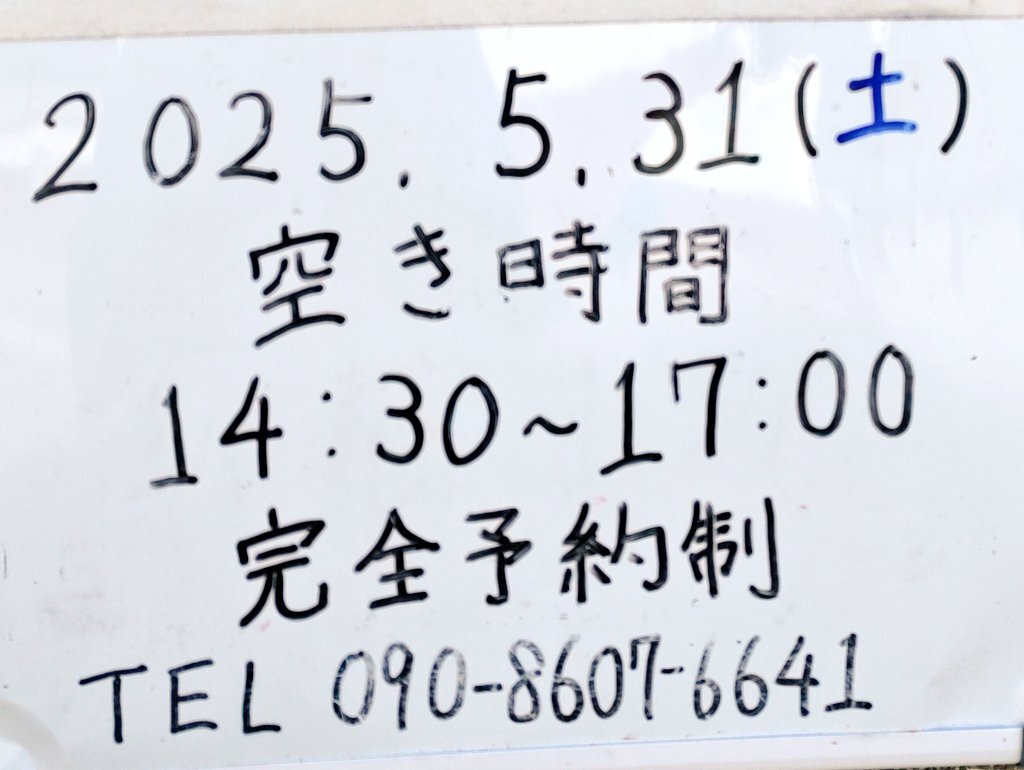 2025. 5.31(土)
空き時間
14:30~17:00
完全予約制
TEL 090-8607-6641